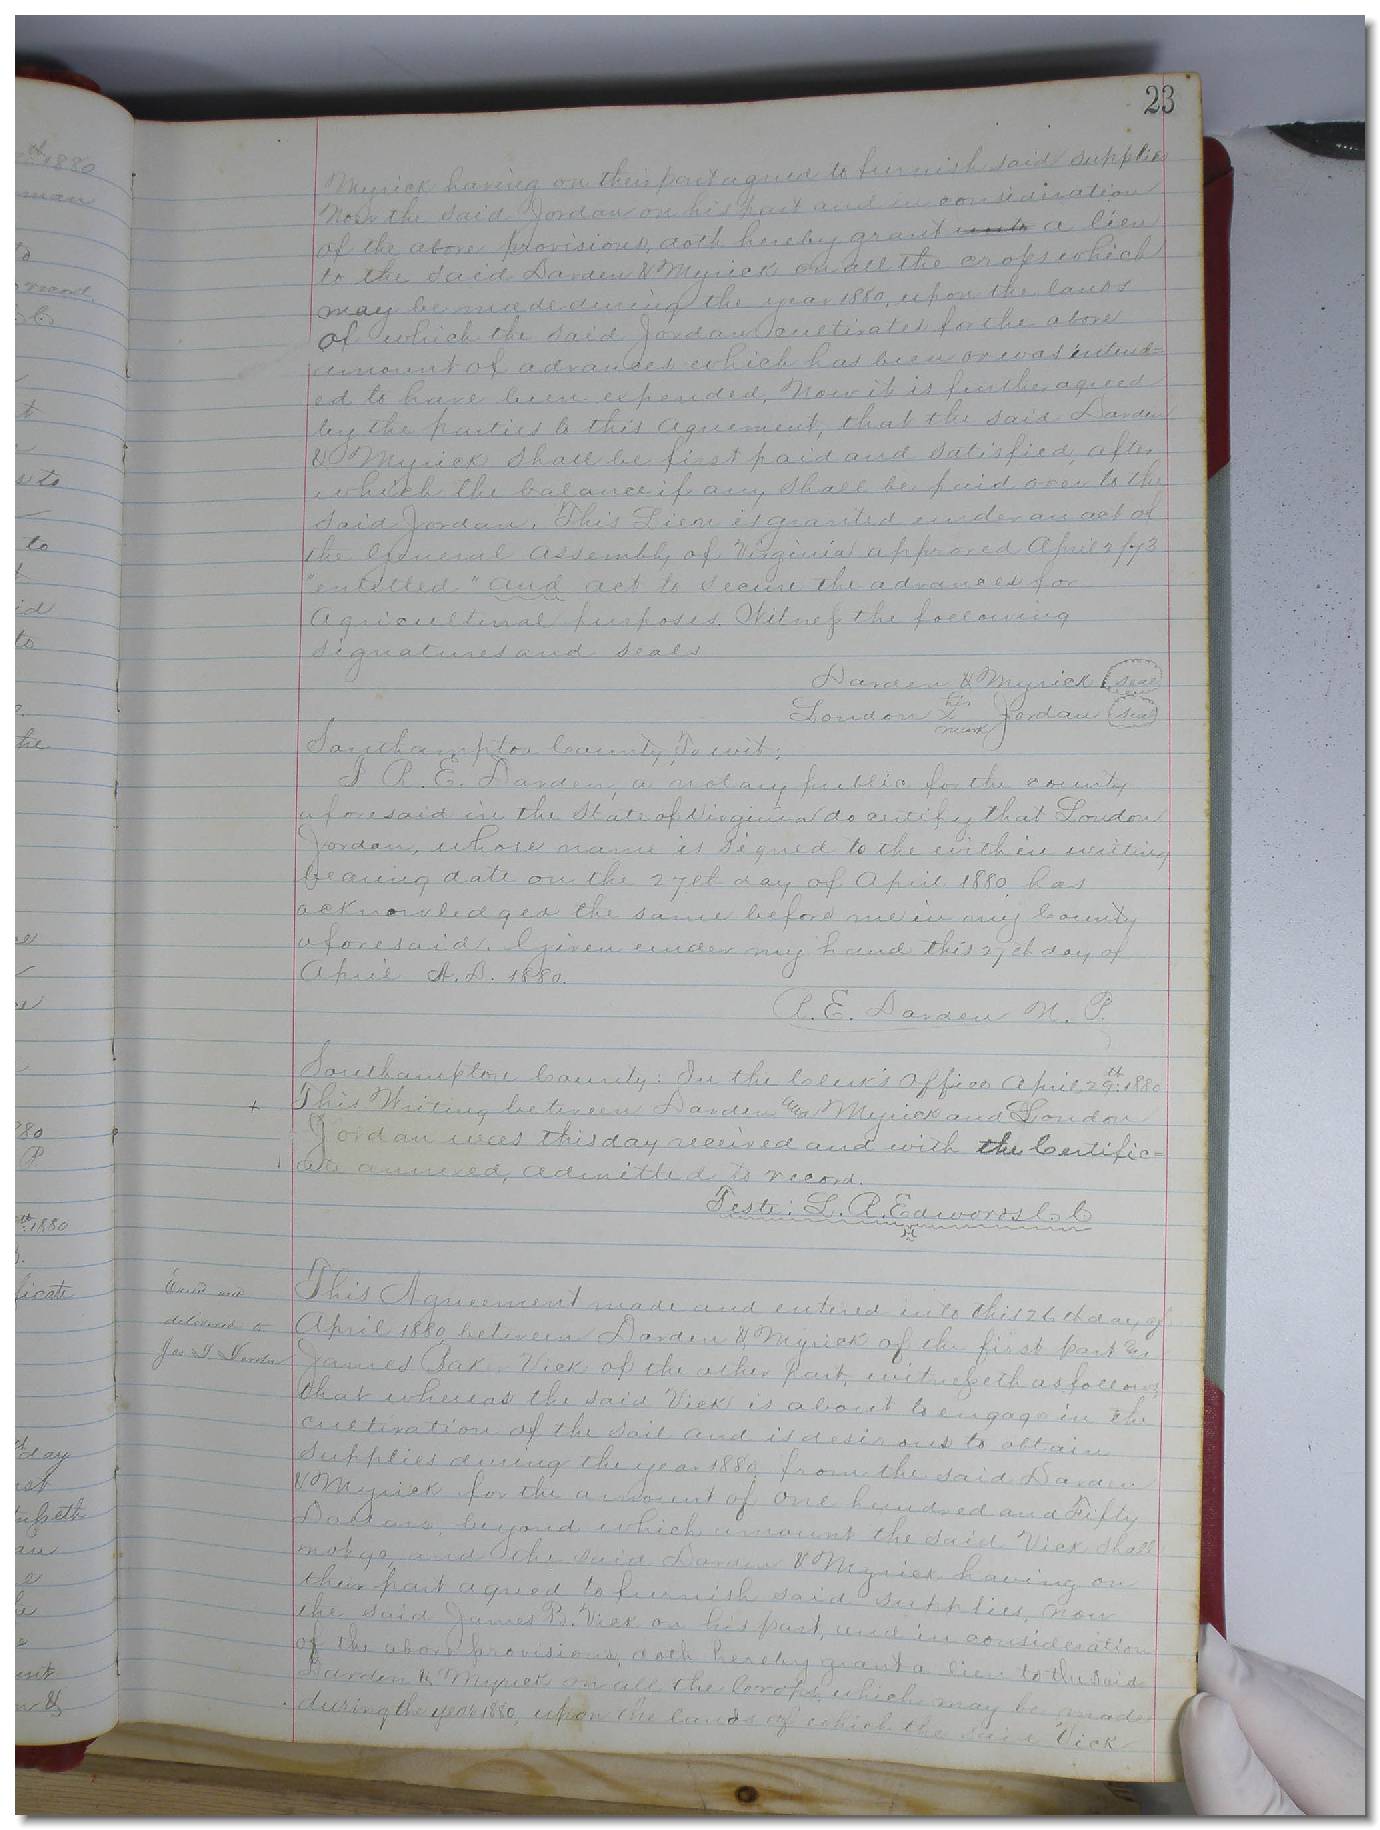 23
Myrick having on their part agreed to furnish said supplies
Now the said Jordan on his part and in consideration
of the above provisions, doth hereby grant a lien
to the said Darden & Myrick on all the crops which
may be made during the year 1880, upon the lands
of which the said Jordan cultivates for the above
amount of advances which has been or was intend=
ed to have been expended, Now it is further agreed
by the parties to this agreement, that the said Darden
& Myrick shall be first paid and satisfied, after
which the balance if any shall be paid over to the
said Jordan. This Lien is granted under an act of
the General Assembly of Virginia approved April 2/73
"entitled" and act to secure the advances for
Agricultural purposes. Witness the following
signatures and seals
Darden & Myrick (seal)
London his X mark Jordan (seal)
Southampton County, To wit;
I R. E. Darden, a notary public for the county
aforesaid in the State of Virginia do certify that London
Jordan, whose name is signed to the within writing
bearing date on the 27th day of April 1880 has
acknowledged the same before me in my County
aforesaid. Given under my hand this 27th day of
April A.D. 1880.
R. E. Darden N. P.
Southampton County: In the Clerk's Office April 29th 1880
This Writing between Darden and Myrick and London
Jordan was this day received and with the Certific=
ate annexed, admitted to record.
Teste: L. R. Edwards C. C
delivered to
This Agreement made and entered into this 26th day of
April 1880, between Darden & Myrick of the first part &
James Vick of the other part, witnesseth as follows,
that whereas the said Vick is about to engage in the
cultivation of the soil and is desirous to obtain
supplies during the year 1880 from the said Darden
& Myrick for the amount of One hundred and Fifty
Dollars, beyond which amount the said Vick shall
not go, and the said Darden & Myrick having on
their part agreed to furnish said supplies, Now
the said James B. Vick on his part, and in consideration
of the above provisions, doth hereby grant a lien to the said
Darden & Myrick on all the Crops, which may be made
during the year 1880, upon the lands of which the said Vick